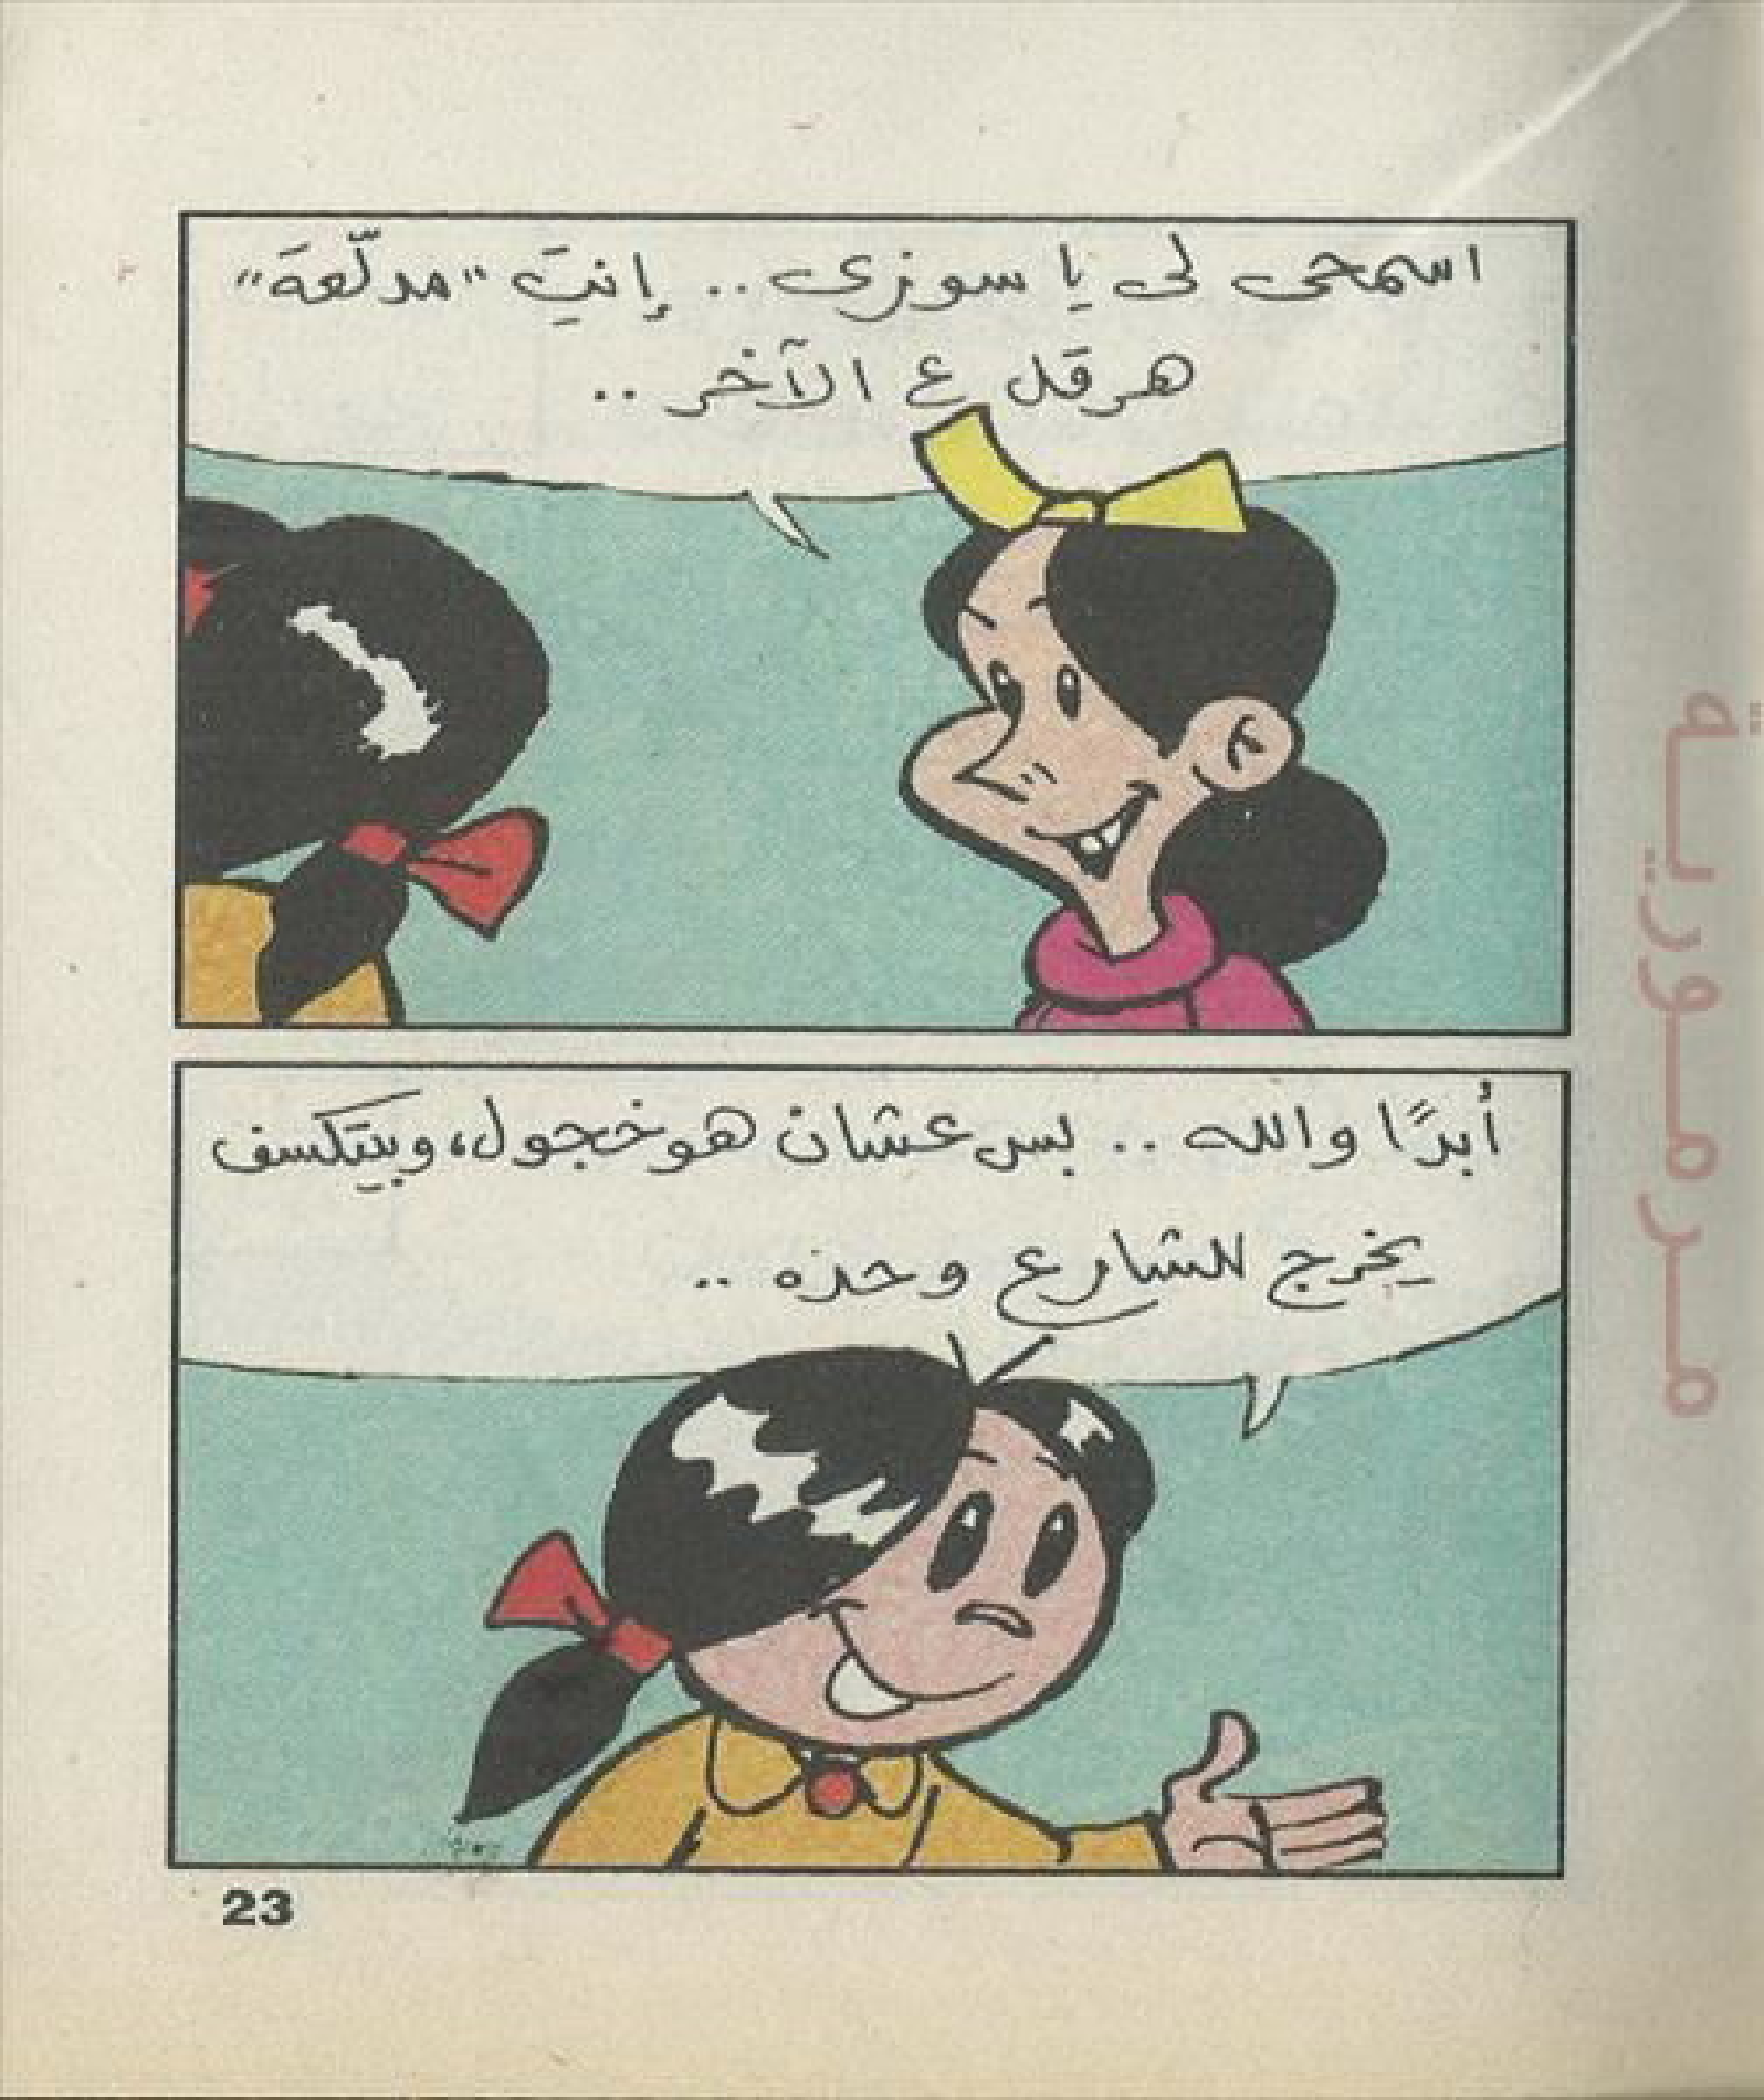 اسمحى لى يا سوزى .. إنتِ "مدلّعة"
هرقل ع الآخر ..
أبدًا والله .. بس عشان هو خجول، وبيتكسف
يخرج للشارع وحده ..
23
مرمورية